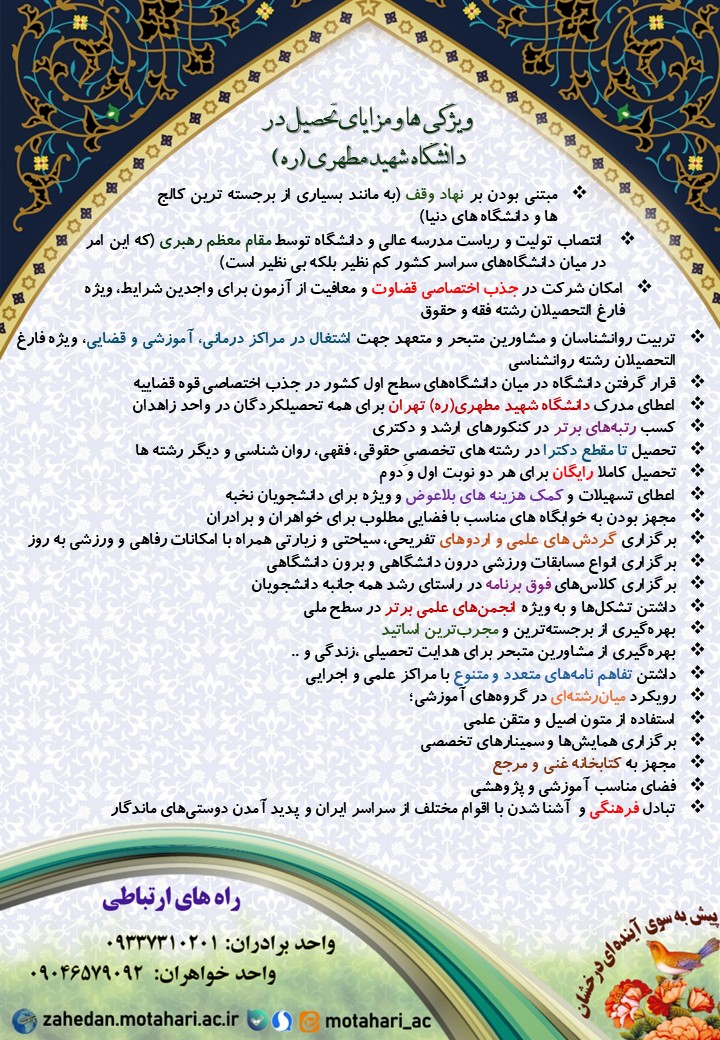 ویژگی ها و مزایای تحصیل در
دانشگاه شهید مطهری (ره)
❖ مبتنی بودن بر نهاد وقف (به مانند بسیاری از برجسته ترین کالج
ها و دانشگاه های دنیا)
❖ انتصاب تولیت و ریاست مدرسه عالی و دانشگاه توسط مقام معظم رهبری (که این امر
در میان دانشگاه‌های سراسر کشور کم نظیر بلکه بی نظیر است)
❖ امکان شرکت در جذب اختصاصی قضاوت و معافیت از آزمون برای واجدین شرایط، ویژه
فارغ التحصیلان رشته فقه و حقوق
❖ تربیت روانشناسان و مشاورین متبحر و متعهد جهت اشتغال در مراکز درمانی، آموزشی و قضایی، ویژه فارغ
التحصیلان رشته روانشناسی
❖ قرار گرفتن دانشگاه در میان دانشگاه‌های سطح اول کشور در جذب اختصاصی قوه قضاییه
❖ اعطای مدرک دانشگاه شهید مطهری(ره) تهران برای همه تحصیلکردگان در واحد زاهدان
❖ کسب رتبه‌های برتر در کنکورهای ارشد و دکتری
❖ تحصیل تا مقطع دکترا در رشته های تخصصیِ حقوقی، فقهی، روان شناسی و دیگر رشته ها
❖ تحصیل کاملا رایگان برای هر دو نوبت اول و دوم
❖ اعطای تسهیلات و کمک هزینه های بلاعوض و ویژه برای دانشجویان نخبه
❖ مجهز بودن به خوابگاه های مناسب با فضایی مطلوب برای خواهران و برادران
❖ برگزاری گردش های علمی و اردوهای تفریحی، سیاحتی و زیارتی همراه با امکانات رفاهی و ورزشی به روز
❖ برگزاری انواع مسابقات ورزشی درون دانشگاهی و برون دانشگاهی
❖ برگزاری کلاس‌های فوق برنامه در راستای رشد همه جانبه دانشجویان
❖ داشتن تشکل‌ها و به ویژه انجمن‌های علمی برتر در سطح ملی
❖ بهره‌گیری از برجسته‌ترین و مجرب‌ترین اساتید
❖ بهره‌گیری از مشاورین متبحر برای هدایت تحصیلی ،زندگی و ..
❖ داشتن تفاهم نامه‌های متعدد و متنوع با مراکز علمی و اجرایی
❖ رویکرد میان‌رشته‌ای در گروه‌های آموزشی؛
❖ استفاده از متون اصیل و متقن علمی
❖ برگزاری همایش‌ها و سمینارهای تخصصی
❖ مجهز به کتابخانه غنی و مرجع
❖ فضای مناسب آموزشی و پژوهشی
❖ تبادل فرهنگی و آشنا شدن با اقوام مختلف از سراسر ایران و پدید آمدن دوستی‌های ماندگار
راه های ارتباطی
واحد برادران: ۰۹۳۳۷۳۱۰۲۰۱
واحد خواهران: ۰۹۰۴۶۵۷۹۰۹۲
پیش به سوی آینده‌ای درخشان
zahedan.motahari.ac.ir motahari_ac